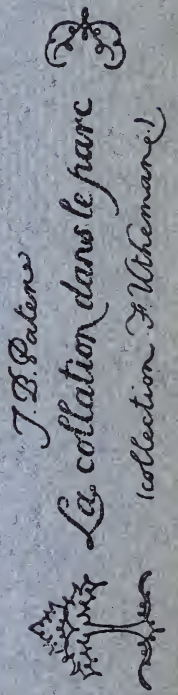 J. B. Patere
La collation dans le parc
(collection F. Uthemann.)